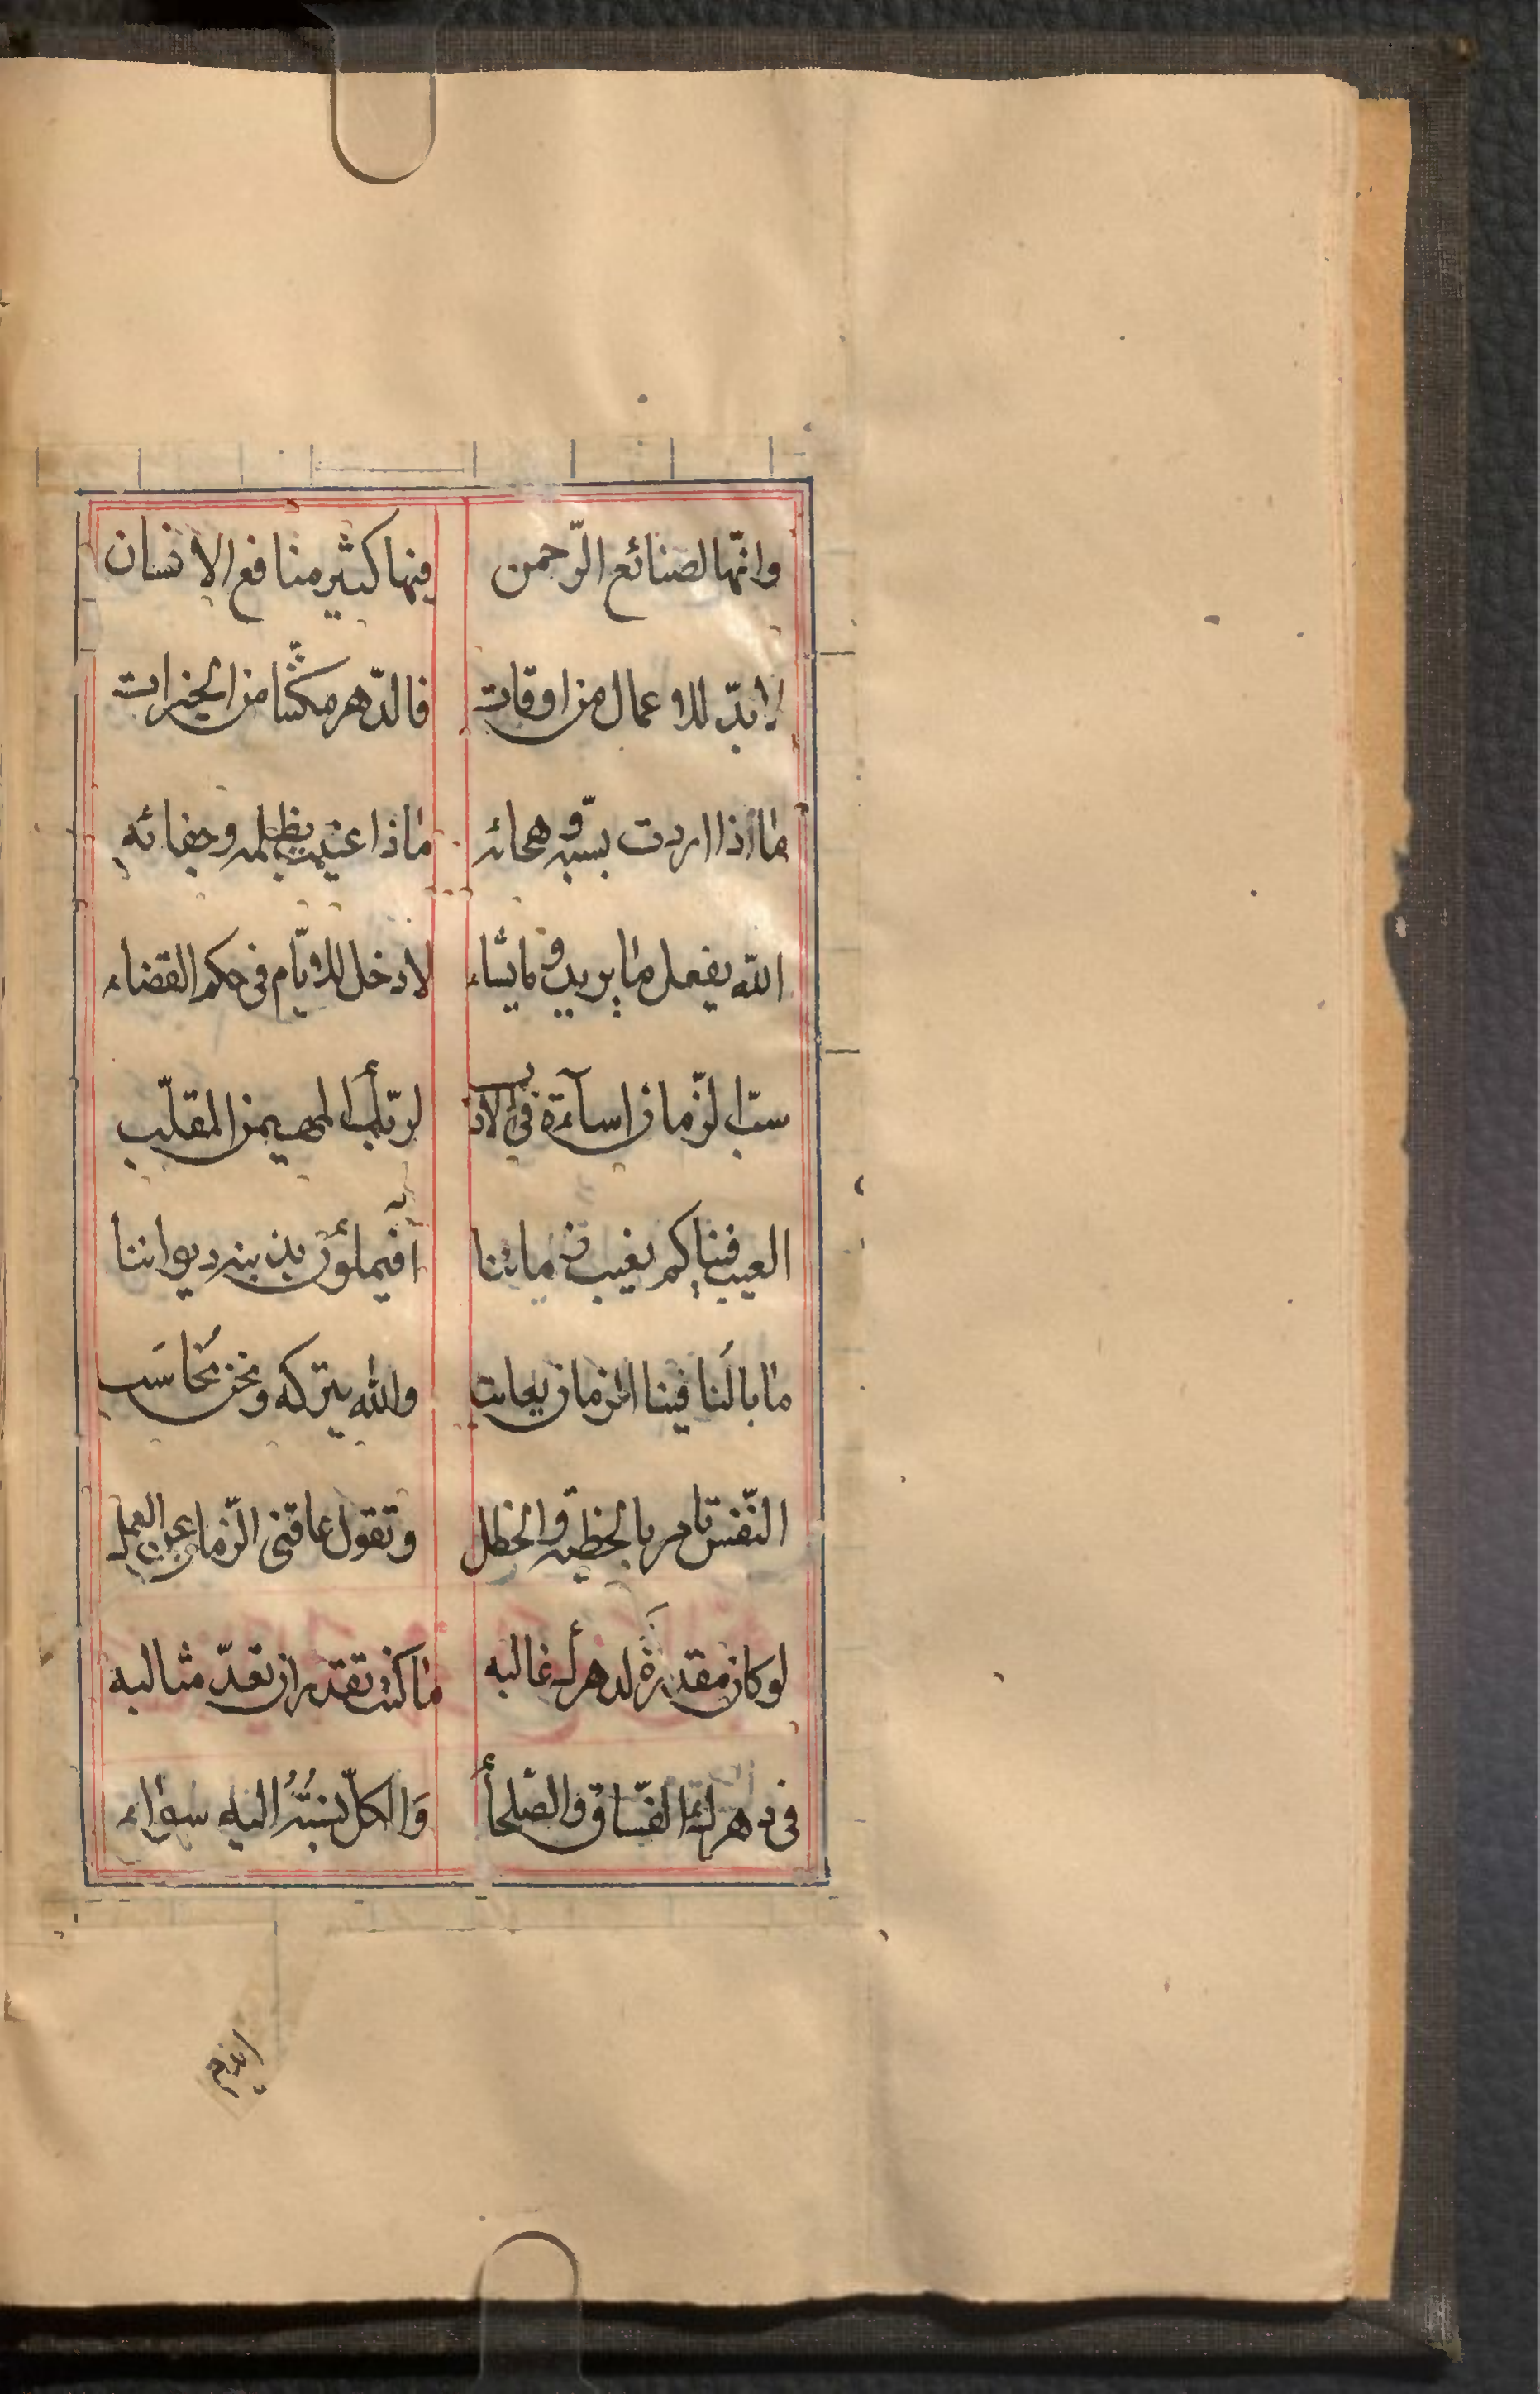 وانّها لصنائع الرّحمن فيها كثير منافع الانسان
لابدّ للاعمال من اوقات فالدّهر مكثّنا من الخيرات
ما اذا اردت بسبّه وهجائه ماذا عنيت بظلمه وجفائه
الله يفعل ما يريد وما يشاء لا دخل للايّام فى حكم القضاء
سبّ الزّمان اسآءة فى الادب لربّك المهيمن المقلّب
العيب فينا كم نعيب زماننا أفيملؤن بذينه ديواننا
ما بالُنا فينا الزمان يعاتب والله يتركه ونحن نُحاسَب
النّفس تامر بالخطيّة والخطل وتقول عاقنى الزّمان عن العمل
لو كان مقدرة لدهرك غالبه ما كنت تقدر ان تعدّ مثالبه
فى دهرك الفسّاق والصّلحأ وَالكلّ نسبتُهُ اليه سواء